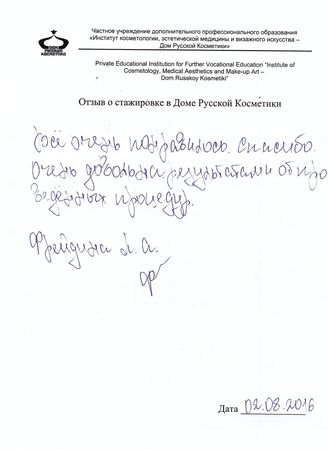 Частное учреждение дополнительного профессионального образования
«Институт косметологии, эстетической медицины и визажного искусства –
Дом Русской Косметики»
Private Educational Institution for Further Vocational Education "Institute of
Cosmetology, Medical Aesthetics and Make-up Art –
Dom Russkoy Kosmetiki"
Отзыв о стажировке в Доме Русской Косметики
Всё очень понравилось. Спасибо.
Очень довольна результатами от про
ведённых процедур.
Фрейдина Л. А.
Дата 02.08.2016